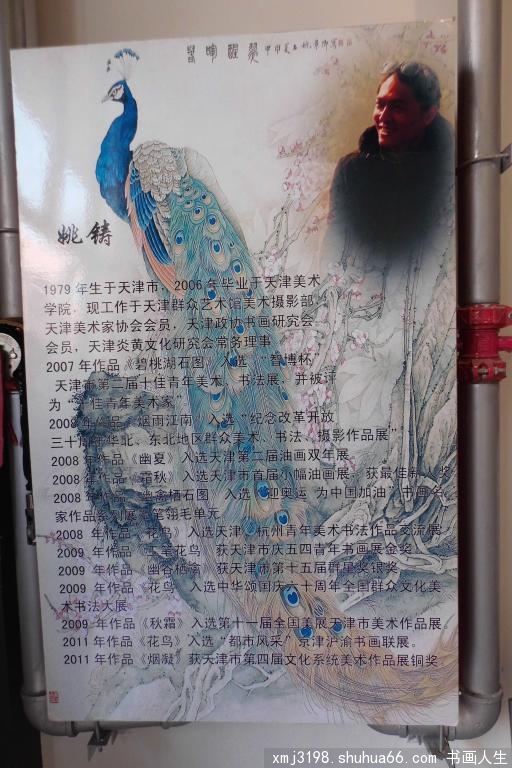 姚铸
1979年生于天津市，2006年毕业于天津美术
学院，现工作于天津群众艺术馆美术摄影部，
天津美术家协会会员，天津政协书画研究会
会员，天津炎黄文化研究会常务理事
2007年作品《碧桃湖石图》入选 “智博杯”
天津市第二届十佳青年美术、书法展，并被评
为“十佳青年美术家”
2008年作品《烟雨江南》入选“纪念改革开放
三十周年华北、东北地区群众美术、书法、摄影作品展”
2008年作品《幽夏》入选天津第二届油画双年展
2008年作品《霜秋》入选天津市首届小幅油画展，获最佳 奖
2008年作品《幽禽栖石图》入选“迎奥运 为中国加油”书画名
家作品系列展·笔翎毛单元
2008 年作品《花鸟》入选天津、杭州青年美术书法作品交流展
2009 年作品《 花鸟》获天津市庆五四青年书画展金奖
2009 年作品《幽谷栖禽》获天津市第十五届群星奖银奖
2009 年作品《花鸟》入选中华颂国庆六十周年全国群众文化美
术书法大展
2009年作品《秋霜》入选第十一届全国美展天津市美术作品展
2011年作品《花鸟》入选“都市风采”京津沪渝书画联展。
2011年作品《烟凝》获天津市第四届文化系统美术作品展铜奖
xmj3198.shuhua66.com 书画人生